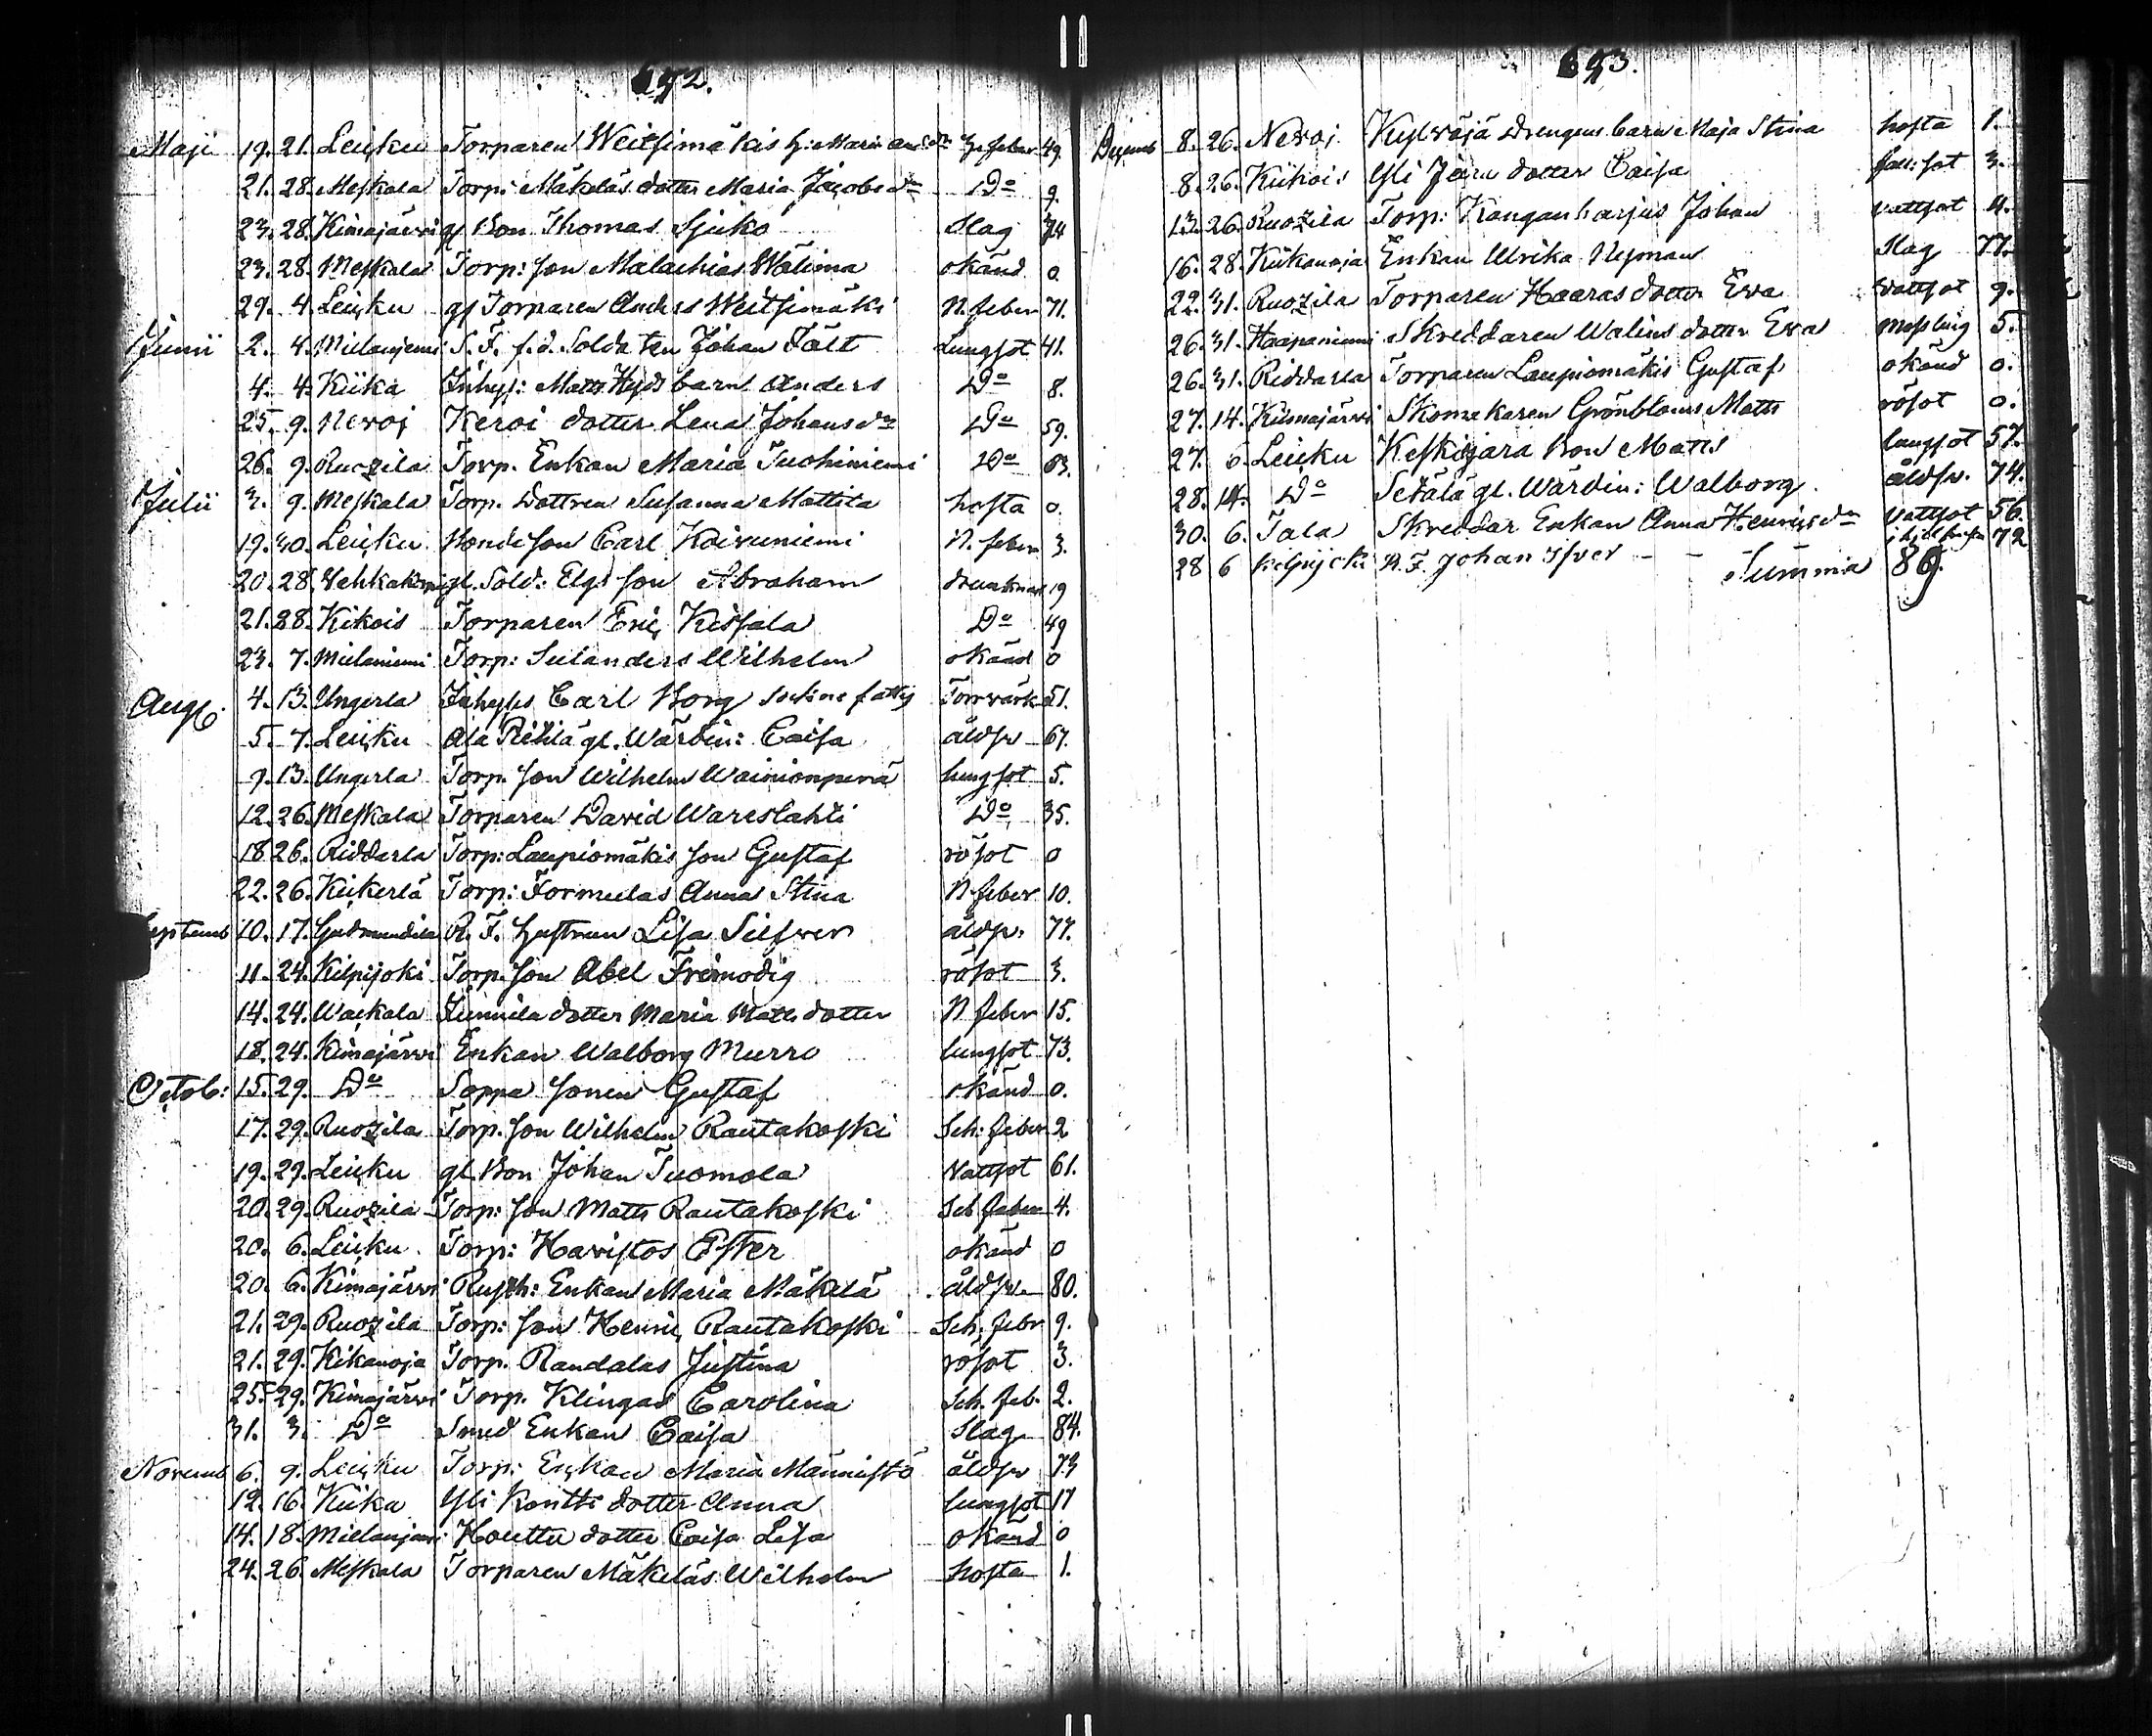 692.
Maji 19. 21. Leicku Torparen Weitsimäkis h: Maria And:dr N. feber 49.
21. 28. Meskala Torp: Mäkeläs dotter Maria Jacobs dr Do 9.
23. 28. Kimajärvi gl Bon Thomas Sjuko Slag 74
23. 28. Meskala Torp: son Malachias Wälima okänd 0
29. 4. Leicku gl Torparen Anders Weitsimäki N. feber 71.
Junii 2. 4. Mielanjemi S. F. f. d. Soldaten Johan Fält Lungsot 41.
4. 4. Kiika Inhys: Matts Hyds barn Anders Do 8.
25. 9. Neroj Keroi dotter Lena Johans dr Do 59.
26. 9. Ruozila Torp. Enkan Maria Tuohiniemi Do 63.
Julii 3. 9. Meskala Torp. Dottren Susanna Mattila hosta 0.
19. 30. Leicku Bonde son Carl Koivuniemi N. feber 3.
20. 28. gl. Sold: Elgs son Abraham drunknad 19
21. 28. Kikois Torparen Eric Kissala Do 49
23. 7. Mielaniemi Torp: Sulanders Wilhelm okänd 0
Aug. 4. 13. Ungerla Inhyses Carl Borg sockne fattig Torrvärk 51.
5. 7. Leicku Ala Pietilä gl. Wärdin: Caisa åldr 67.
9. 13. Ungerla Torp. son Wilhelm Wainionpenä lungsot 5.
12. 26. Meskala Torparen David Wareslahti Do 35.
18. 26. Riddarla Torp: Laupiomäkis son Gustaf rösot 0
22. 26. Kiikerlä Torp: Formulas Anna Stina N feber 10.
Septemb 10. 17. Gudmundila R. F. Hustrun Lisa Silfver åldr. 77.
11. 24. Kilpijoki Torp. son Abel Freimodig rösot 3.
14. 24. Waekala Junnila dotter Maria Matts dotter N feber 15.
18. 24. Kimajärvi Enkan Walborg Murro lungsot 73.
Octob: 15. 29. Do Soppa sonen Gustaf okänd 0.
17. 29. Ruozila Torp. son Wilhelm Rautakoski Sch: feber 2
19. 29. Leicku gl. Bon Johan Tuomola Vattsot 61.
20. 29. Ruozila Torp: son Matts Rautakoski Sch feber 4.
20. 6. Leicku Torp: Haristos Ester okänd 0
20. 6. Kimajärvi Rusth: Enkan Maria Mäkelä åldr 80.
21. 29. Ruozila Torp: son Henric Rautakoski Sch. febr 9.
21. 29. Kikanoja Torp. Randalas Justina rösot 3.
25. 29. Kimajärvi Torp. Klingas Carolina Sch. feb. 2.
31. 3. Do Smed Enkan Caisa Slag 84.
Novemb 6. 9. Leicku Torp: Enkan Maria Männistö åldr 73
12. 16. Kiika Yli Kontti dotter Anna lungsot 17
14. 18. Mielanjemi Houttu dotter Caisa Lisa okänd 0
24. 26. Meskala Torparen Mäkeläs Wilhelm hosta 1.
693.
Decemb 8. 26. Neroj Kylväjä Drengens barn Maja Stina hosta 1.
8. 26. Kiikois Yli Jaru dotter Caisa fall: sot 3.
13. 26. Ruozila Torp: Kanganharjus Johan vattsot 4.
16. 28. Kiikanoja Enkan Ulrika Nyman Slag 77.
22. 31. Ruozila Torparen Haaras dotter Eva vattsot 9.
26. 31. Haapaniemi Skreddaren Walins dotter Eva messling 5.
26. 31. Riddarla Torparen Laupiomäkis Gustaf okänd 0.
27. 14. Kiimajärvi Skomakaren Grönbloms Matts rösot 0.
27. 6. Leicku Keskijara Bon Matts lungsot 57.
28. 14. Do Setälä gl. Wärdin: Walborg åldr. 74.
30. 6. Tala Skreddar Enkan Anna Henrics dr Vattsot 56.
28 6 Kilpijoki R. F. Johan Ifver 72
Summa 89.